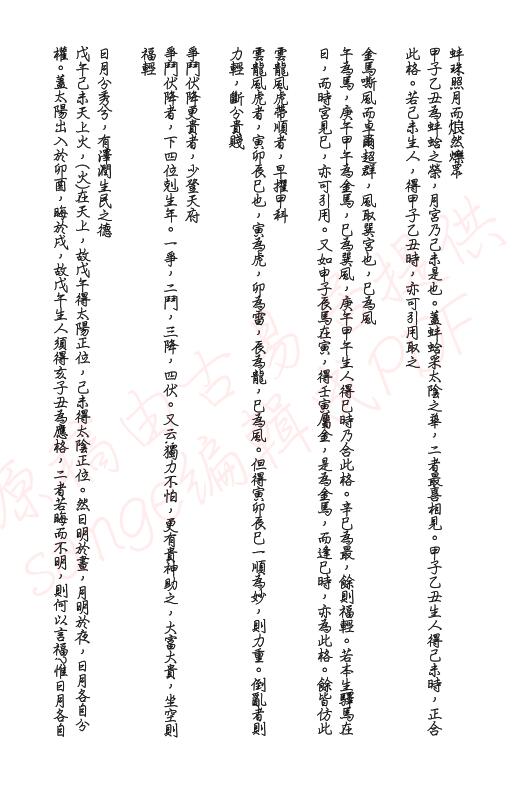 蚌珠照月而烺然爍眾
甲子乙丑為蚌蛤之榮，月宮乃己未是也。蓋蚌蛤采太陰之華，二者最喜相見。甲子乙丑生人得己未時，正合
此格。若己未生人，得甲子乙丑時，亦可引用取之
金馬嘶風而卓爾超群，風取巽宮也，巳為風
午為馬，庚午甲午為金馬，巳為巽風，庚午甲午生人得巳時乃合此格。辛巳為最，餘則福輕。若本生驛馬在
日，而時宮見巳，亦可引用。又如申子辰馬在寅，得壬寅屬金，是為金馬，而逢巳時，亦為此格。餘皆仿此
雲龍風虎帶順者，早擢甲科
雲龍風虎者，寅卯辰巳也，寅為虎，卯為雷，辰為龍，巳為風。但得寅卯辰巳一順為妙，則力重。倒亂者則
力輕，斷分貴賤
爭鬥伏降更貴者，少登天府
爭鬥伏降者，下四位剋生年。一爭，二鬥，三降，四伏。又云獨力不怕，更有貴神助之，大富大貴，坐空則
福輕
日月分秀兮，有澤潤生民之德
戊午己未天上火，(火)在天上，故戊午得太陽正位，己未得太陰正位。然日明於晝，月明於夜，日月各自分
權。蓋太陽出入於卯酉，晦於戌，故戊午年生人須得亥子丑為應格，二者若晦而不明，則何以言福?惟日月各自
原稿由古易堂提供
sange編輯成PDF